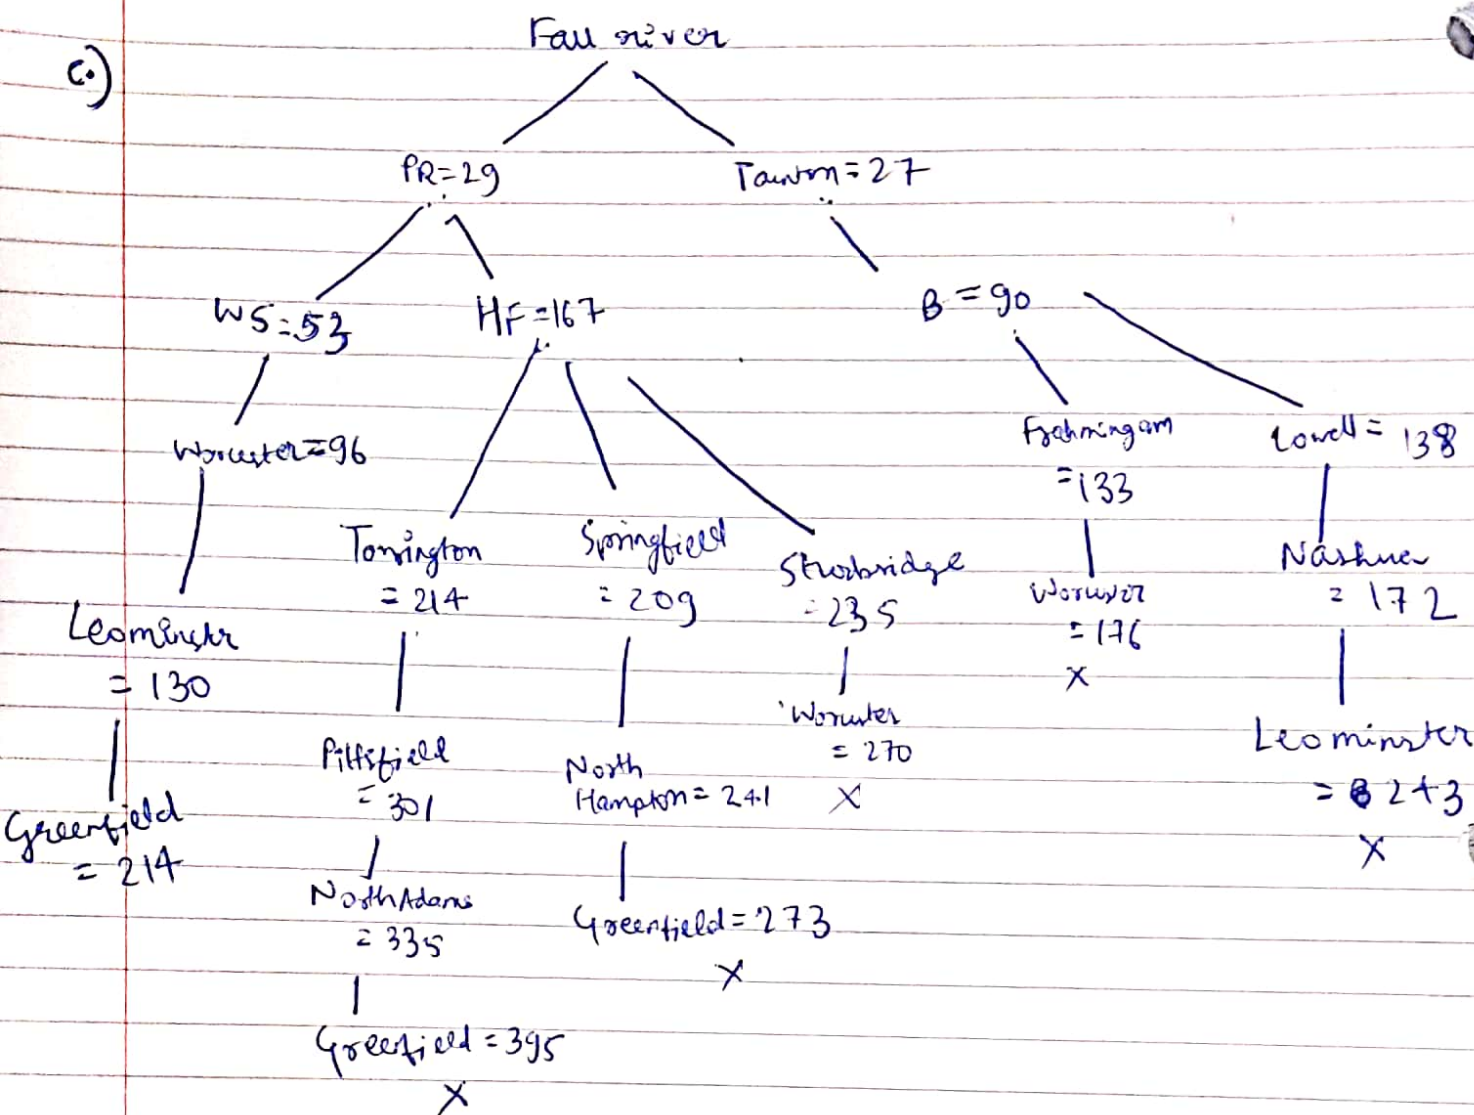 c.)
Fall river
PR=29
Taunton=27
WS=53
HF=167
B=90
Worcester=96
Frahmingam
=133
Lowell= 138
Torrington
=214
Springfield
=209
Sturbridge
=235
Worcester
=176
X
Nashua
=172
Leominster
=130
Worcester
=270
X
Leominster
=243
X
Pittsfield
=301
North
Hampton=241
Greenfield
=214
North Adams
=335
Greenfield=273
X
Greenfield=395
X